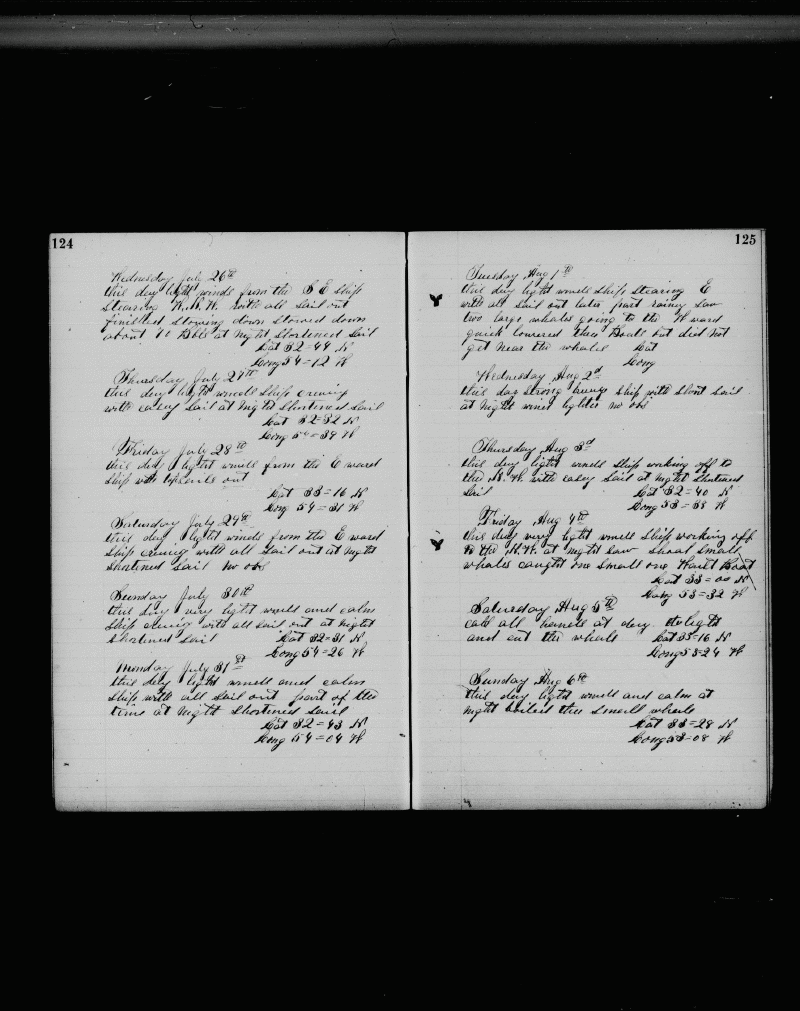 124
Wednesday July 26th
this day light winds from the S E Ship
Stearing N.N.W. with all sail out
finished stowing down stowed down
about 10 Bbls at Night Shortened Sail
Lat 32=44 N
Long 54=12 W
Thursday July 27th
this day light winds Ship cruing
with easey Sail at night Shortened Sail
Lat 32=32 N
Long 54=39 W
Friday July 28th
this day light winds from the E ward
Ship with out
Lat 33=16 N
Long 54=31 W
Saturday July 29th
this day light winds from the E ward
Ship cruing with all Sail out at Night
Shortened Sail no obs
Sunday July 30th
this day very light winds and calm
Ship cruing with all Sail out at Night
Shortened Sail Lat 32=31 N
Long 54=26 W
Monday July 31st
this day light winds and calm
Ship with all Sail out part of the
time at Night Shortened Sail
Lat 32=43 N
Long 54=04 W
125
Tuesday Aug 1st
this day light winds Ship Stearing E
with all Sail out later part rainy Saw
two large whales going to the W ward
quick lowered three Boats but did Not
get Near the whales Lat
Long
Wednesday Aug 2d
this day Strong Ship with Short Sail
at Night wind lighter no obs
Thursday Aug 3d
this day light winds Ship working off to
the N. W. with easey Sail at Night Shortened
Sail Lat 32=40 N
Long 53=38 W
Friday Aug 4th
this day very light winds Ship working off
to the N.W. at Night Saw Shoal Small
whales caught one Small one Boat
Lat 33=00 N
Long 53=32 W
Saturday Aug 5th
cald all hands at day light
and cut the whale Lat 33=16 N
Long 53=24 W
Sunday Aug 6th
this day light winds and calm at
Night boiled the Small whale
Lat 33=28 N
Long 53=08 W